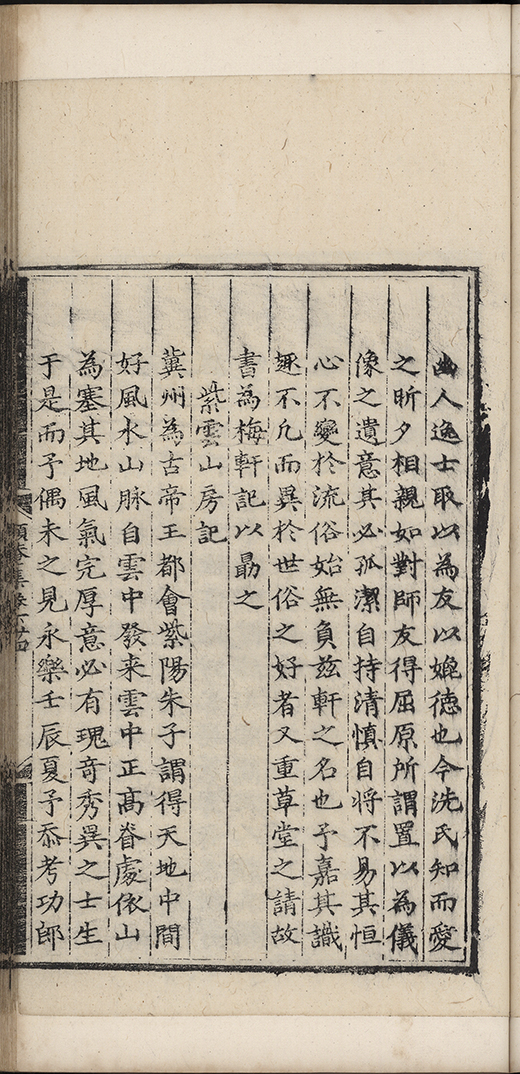 幽人逸士取以為友以媲德也今洗氏知而愛
之昕夕相親如對師友得屈原所謂置以為儀
像之遺意其必孤潔自持清慎自将不易其恒
心不變於流俗始無負兹軒之名也予嘉其識
趣不凡而異於世俗之好者又重草堂之請故
書為梅軒記以勗之
紫雲山房記
冀州為古帝王都會紫陽朱子謂得天地中間
好風水山脉自雲中發来雲中正髙脊處依山
為塞其地風氣完厚意必有瑰竒秀異之士生
于是而予偶未之見永樂壬辰夏予忝考功郎